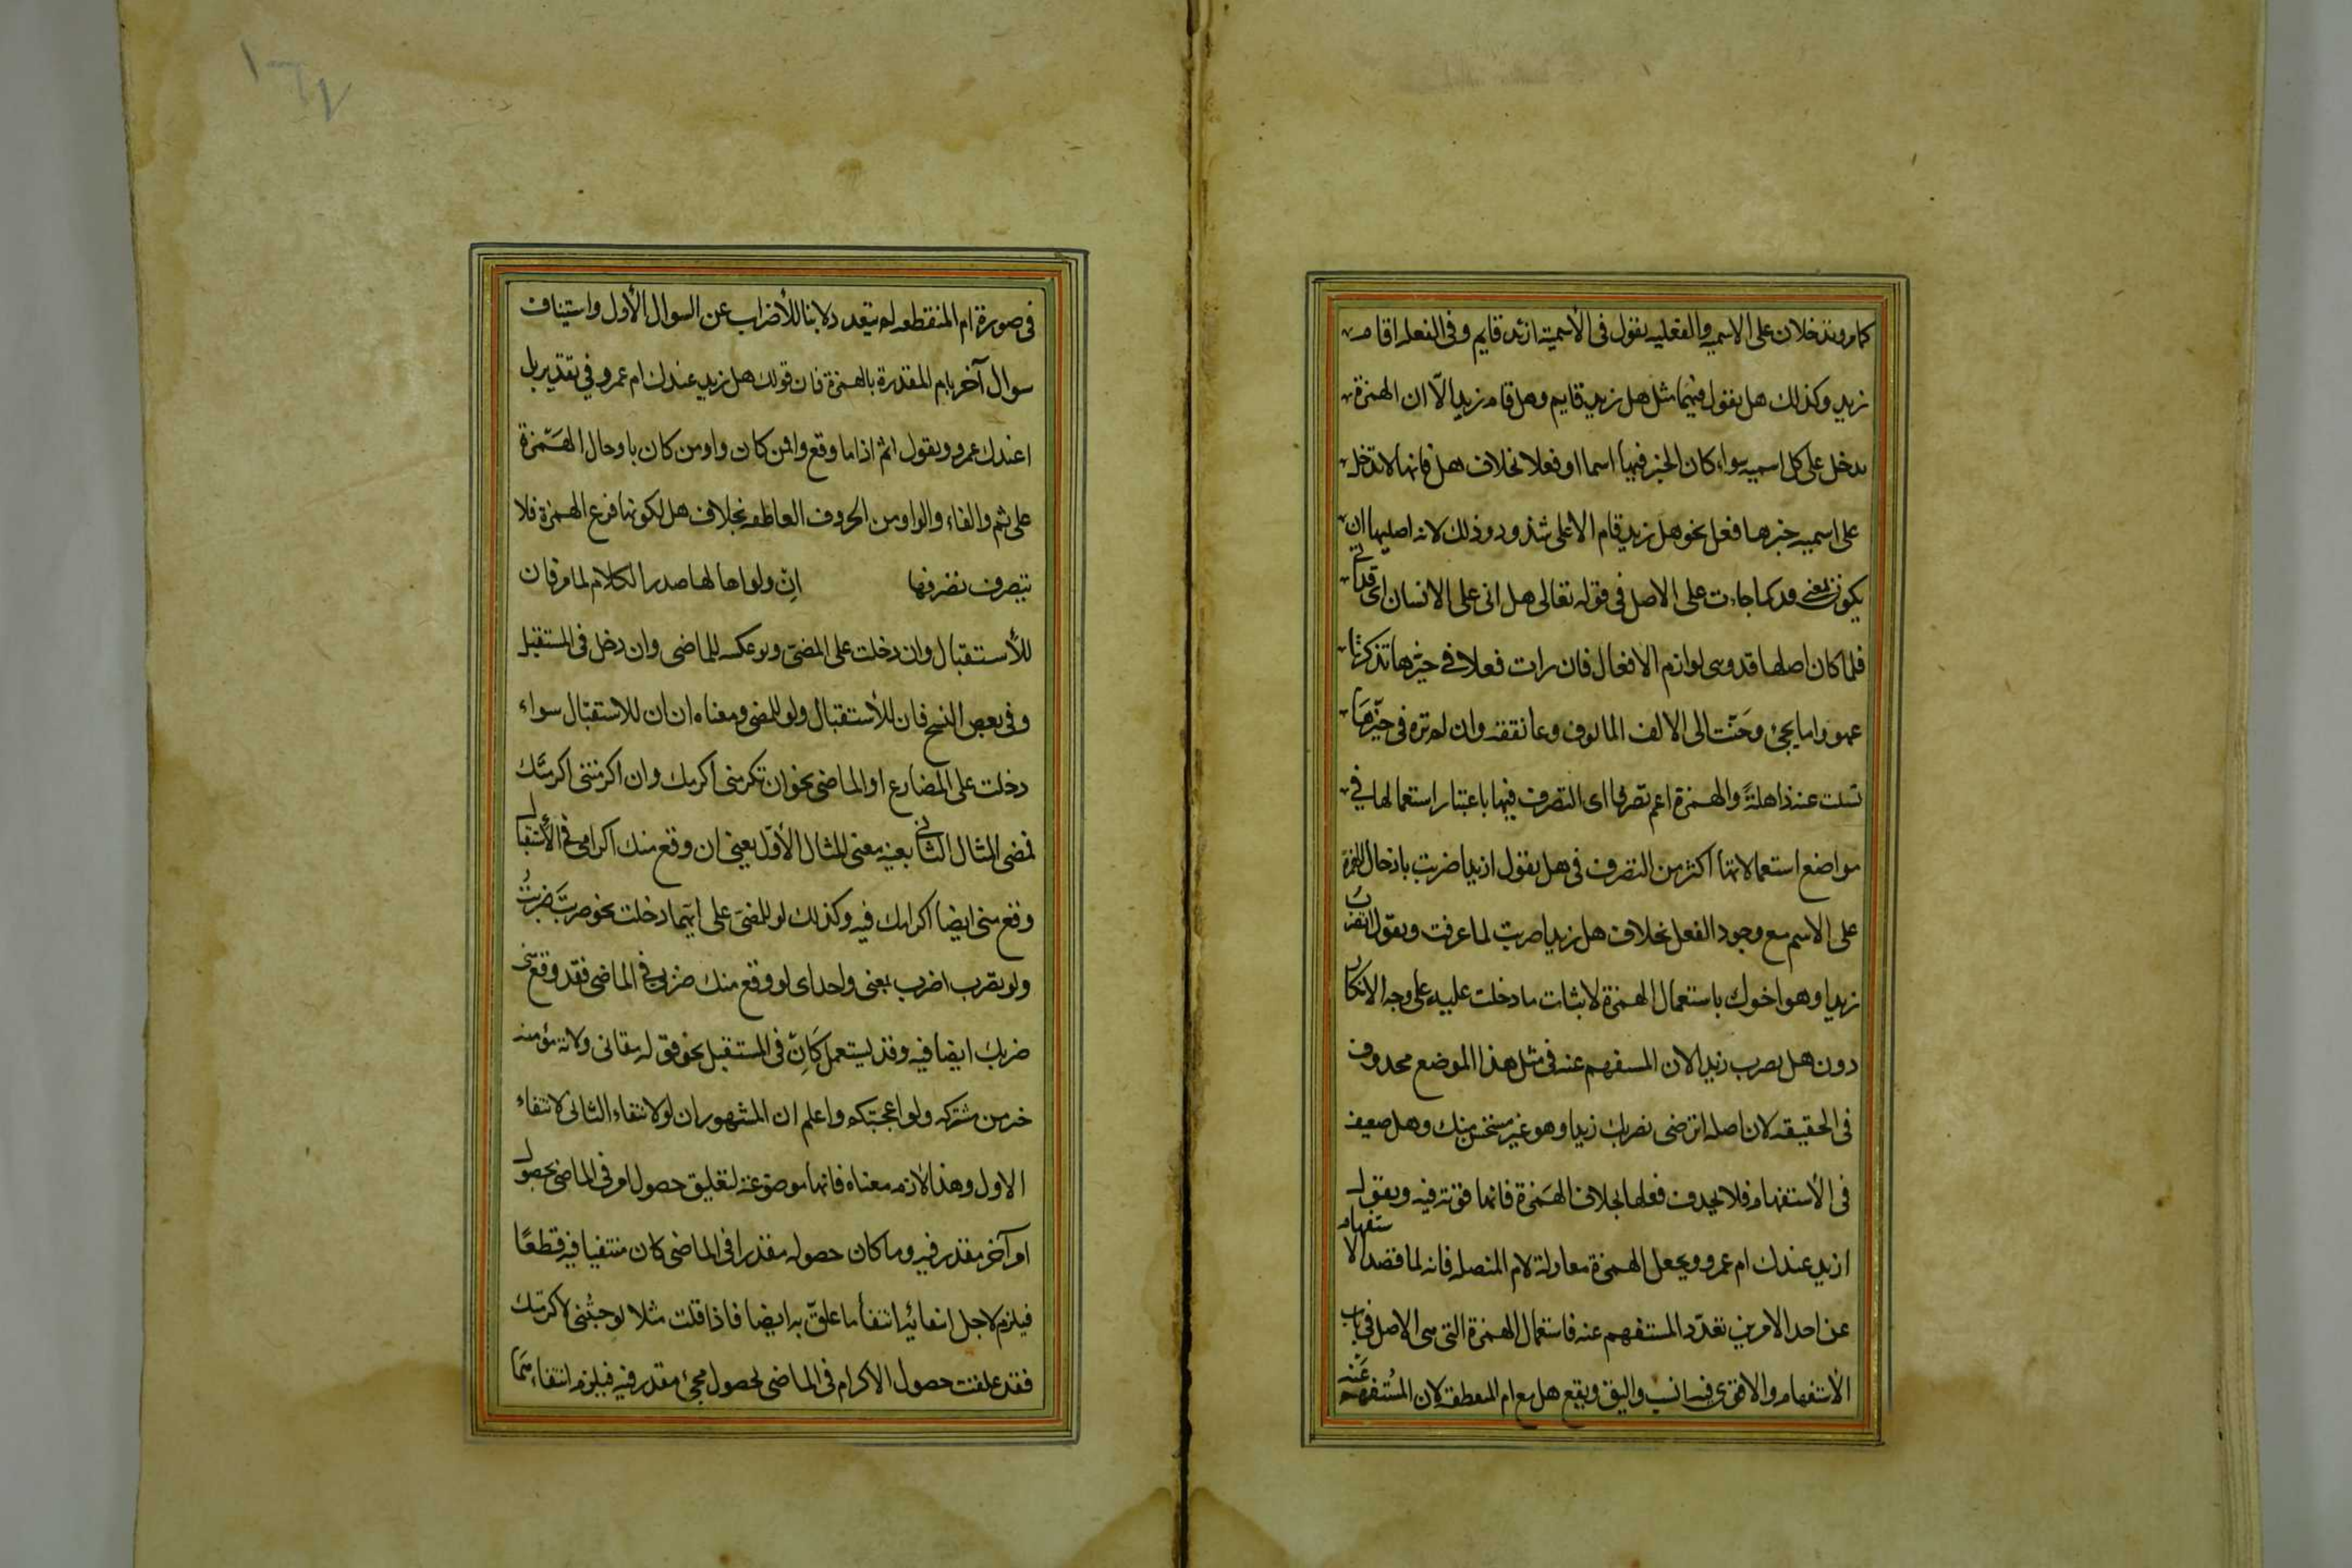 كما مر وتدخلان على الاسميه والفعليه يقول فى الأسمية ازيد قايم وفى الفعليه اقام
زيد وكذلك هل يقول فيهما مثل هل زيد قايم وهل قام زيد الّا ان الهمزة
يدخل على كل اسميه سواء كان الخبر فيها اسما او فعلا بخلاف هل فانها لا تدخل
على اسميه خبرها فعل نحو هل زيد قام الا على شذوذ وذلك لانه اصلها ان
يكون بمعنى قد كما جاءت على الاصل فى قوله تعالى هل اتى على الانسان اى قد اتى
فلما كان اصلها قد وهى لوازم الافعال فان رات فعلا فى حيزها تذكرت
عهودا وحنّت الى الالف المالوف وعانقته وان لم تره فى حيّزها
تسلت عنه ذاهلةً والهمزة اعم تصرفا اى التصرف فيها باعتبار استعمالها فى
مواضع استعمالاتها اكثر من التصرف فى هل يقول ازيدا ضربت بادخال الهمزة
على الاسم مع وجود الفعل بخلاف هل زيدا ضربت لما عرفت ويقول اتضرب
زيدا وهو اخوك باستعمال الهمزة لاثبات ما دخلت عليه على وجه الانكار
دون هل يضرب زيدا لان المستفهم عنه فى مثل هذا الموضع محذوف
فى الحقيقه لان اصله اترضى بضربك زيدا وهو غير مستحسن منك وهل ضعيف
فى الأستفهام فلا يحذف فعلها بخلاف الهمزة فانها قوته فيه ويقول
ازيد عندك ام عمرو ويجعل الهمزة معادلة لام المتصله فانه لما قصد الاستفهام
عن احد الامرين تعدّد المستفهم عنه فاستعمال الهمزة التى هى الاصل فى باب
الأستفهام والاقوى فيه انسب واليق ويقع هل مع ام المنقطعة لان المُستفهم عَنه
فى صورة ام المنقطعه لم يتعدد لانها للأضراب عن السوال الأول واستيناف
سوال آخر بام المقدرة بالهمزة فان قولك هل زيد عندك ام عمرو فى تقدير بل
اعندك عمرو ويقول اثم اذا ما وقع وافمن كان واومن كان بادخال الهمزة
على ثم والفاء والواو من الحروف العاطفه بخلاف هل لكونها فرع الهمزة فلا
يتصرف تصرفها ان ولو اما لها صدر الكلام لما مر فان
للأستقبال وان دخلت على المضى ولو عكسه للماضى وان دخل فى المستقبل
وفى بعض النسخ فان للأستقبال ولو للمضى ومعناه ان ان للاستقبال سواء
دخلت على المضارع او الماضى نحو ان تكرمنى اكرمك وان اكرمتنى اكرمتك
فمعنى المثال الثانى بعينه معنى المثال الأوّل يعنى ان وقع منك اكرامى فى الأستقبال
وقع منى ايضا اكرامك فيه وكذلك لو للمضى على ايهما دخلت نحو لو ضربتَ ضربتُ
ولو تضرب اضرب بمعنى واحد اى لو وقع منك ضربى فى الماضى فقد وقع منى
ضربك ايضا فيه وقد يستعمل كان فى المستقبل نحو قوله تعالى ولامة مؤمنه
خير من مشركه ولو اعجبتكم واعلم ان المشهور ان لو لانتفاء الثانى لانتفاء
الاول وهذا لازم معناه فانها موضوعة لتعليق حصول امر فى الماضى بحصول
امر آخر مقدر فيه وما كان حصوله مقدرا فى الماضى كان منتفيا فيه قطعًا
فيلزم لاجل انتفائه انتفاء ما علّق به ايضا فاذا قلت مثلا لو جئتنى لاكرمتك
فقد علقت حصول الاكرام فى الماضى لحصول مجئ مقدر فيه فيلزم انتفاء